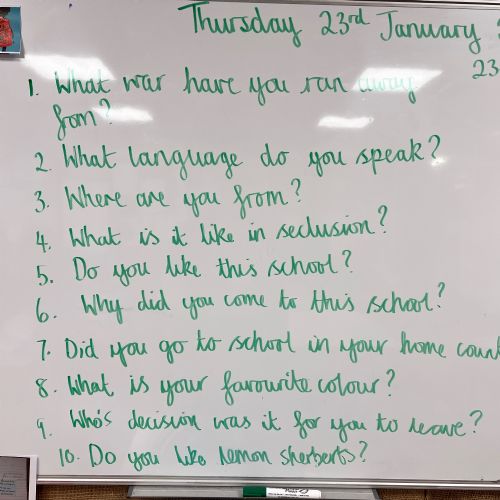 Thursday 23rd January
23
1. What war have you ran away
from?
2. What language do you speak?
3. Where are you from?
4. What is it like in seclusion?
5. Do you like this school?
6. Why did you come to this school?
7. Did you go to school in your home count
8. What is your favourite colour?
9. Who's decision was it for you to leave?
10. Do you like lemon sherberts?